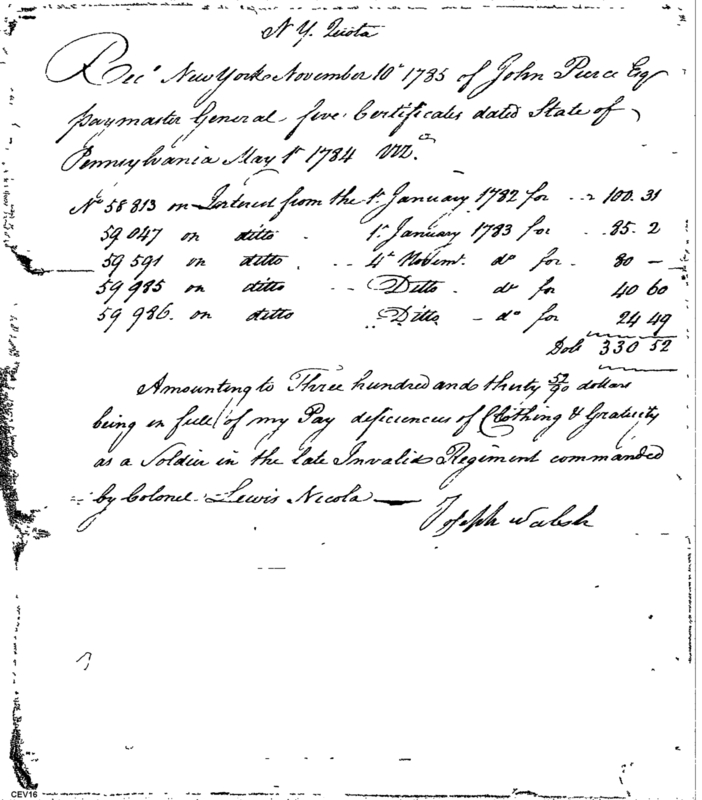 N Y. Quota
Rec.d New York November 10th 1785 of John Pierce Esqr
paymaster General five Certificates dated State of
Pennsylvania May 1st 1784 Viz.
No 58 813 on Interest from the 1st January 1782 for 100. 31
59 047 on ditto 1st January 1783 for 85. 2
59 591 on ditto 4th Novemr. do for 80 —
59 985 on ditto Ditto do for 40 60
59 986. on ditto Ditto do for 24 49
Dolls 330 52
Amounting to Three hundred and thirty 52/90 dollars
being in full of my Pay deficiences of Clothing & Gratuity
as a Soldier in the late Invalid Regiment commanded
by Colonel Lewis Nicola
Joseph Walsh
CEV16